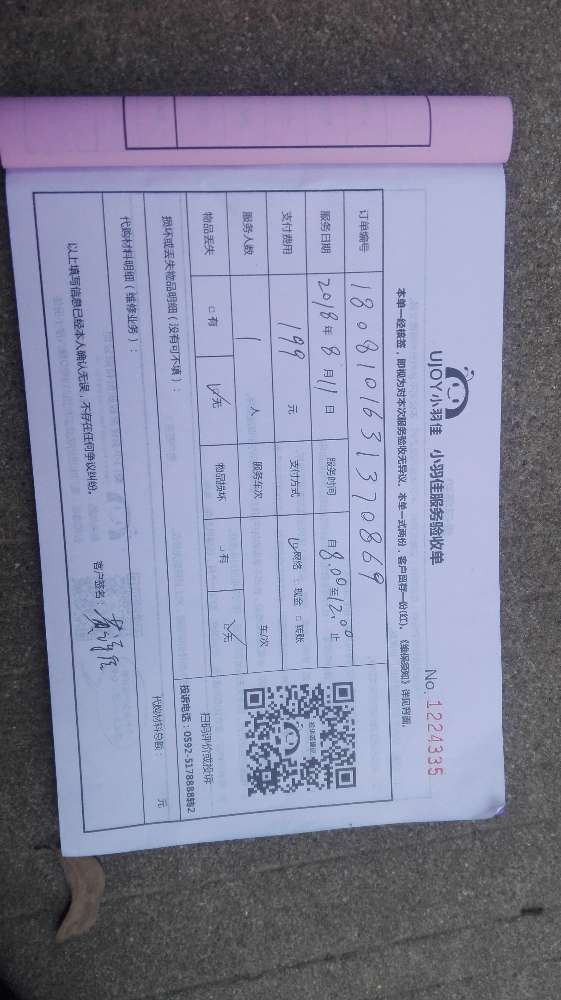 UJOY小羽佳 小羽佳服务验收单
No. 1224335
本单一经核签，即视为对本次服务验收无异议。本单一式两份，客户留存一份(红)。《维保须知》详见背面。
订单编号 180810163137 0869
服务日期 2018年 8月 11日 服务时间 自8.00至12.00止
支付费用 199 元 支付方式 ☑网络 □现金 □转账
服务人数 1 人 服务车次 车/次
物品丢失 □有 ☑无 物品损坏 □有 ☑无
扫码评价或投诉
投诉电话：0592-5178888转2
损坏或丢失物品明细（没有可不填）：
代购材料明细（维修业务）： 代购材料总额： 元
以上填写信息已经本人确认无误，不存在任何争议纠纷。 客户签名：